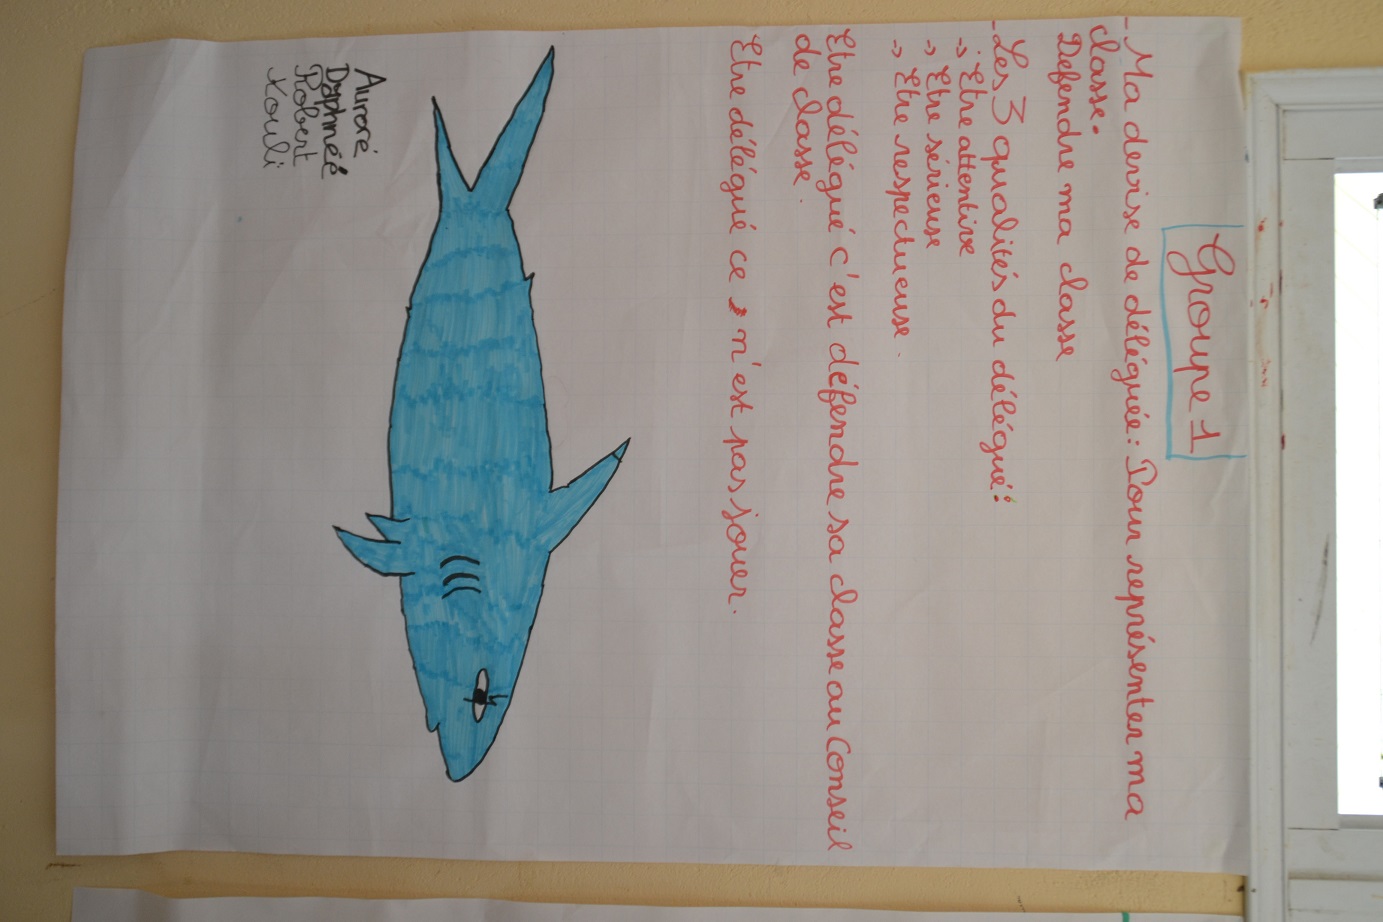 Groupe 1
- Ma devise de déléguée : Pour représenter ma
classe.
Defendre ma classe
- Les 3 qualités du délégué :
→ Etre attentive
→ Etre sérieuse
→ Etre respectueuse.
Etre délégué c'est défendre sa classe au Conseil
de classe.
Etre délégué ce n'est pas jouer.
Aurore
Daphnéé
Robert
Kouli